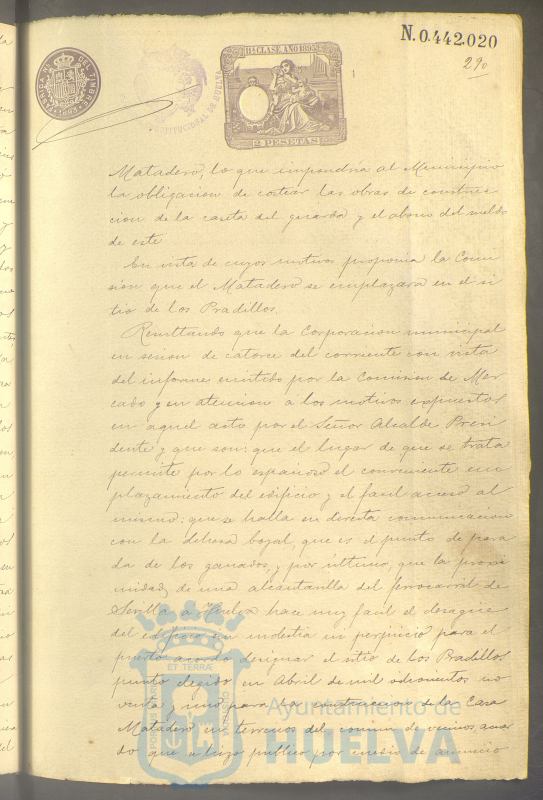 N.0.442.020
290
11ª CLASE AÑO 1895
2 PESETAS
Matadero, lo que impondria al Municipio
la obligacion de costear las obras de construc-
cion de la caseta del guarda y el abono del sueldo
de este
En vista de cuyos motivos proponia la Comi
sion que el Matadero se emplazara en el si
tio de los Pradillos.
Resultando que la Corporacion municipal
en sesion de catorce del corriente con vista
del informe emitido por la Comision de Mer
cado y en atencion a los motivos expuestos
en aquel acto por el Señor Alcalde Presi
dente y que son: que el lugar de que se trata
permite por lo espacioso el conveniente em
plazamiento del edificio y el facil acceso al
mismo: que se halla en directa comunicacion
con la dehesa boyal, que es el punto de para
da de los ganados, y por último, que la proxi
midad de una alcantarilla del ferrocarril de
Sevilla a Huelva hace muy facil el desagüe
del edificio sin molestia ni perjuicio para el
puerto acordo designar el sitio de los Pradillos
punto elegido en Abril de mil ochocientos no
venta y uno para la construccion de la Casa
Matadero en terrenos del comun de vecinos acuer
do que se hizo publico por medio de anuncio
Ayuntamiento de
HUELVA